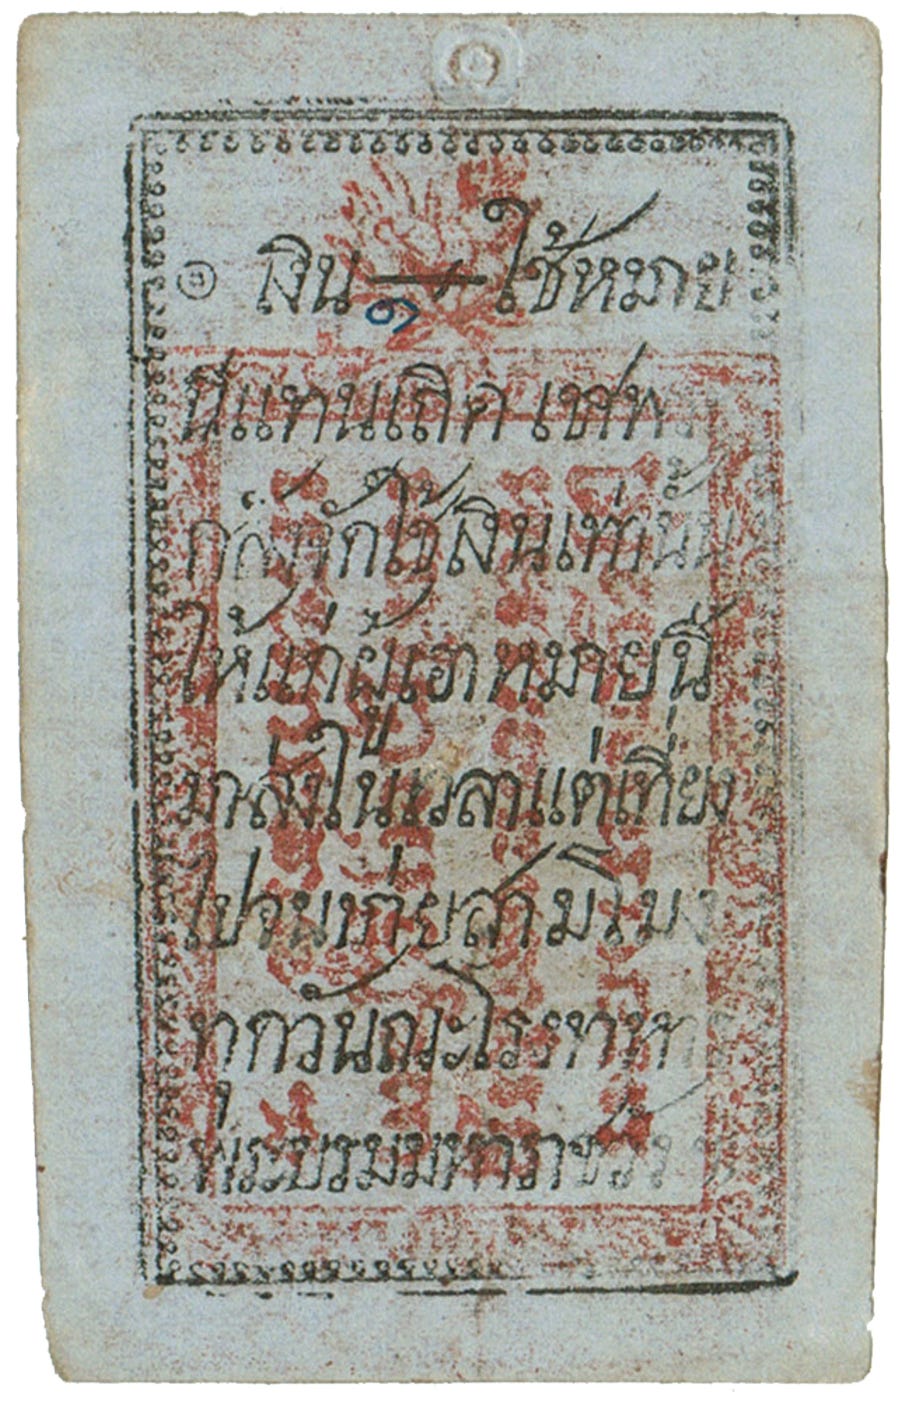 ๏ เงิน ๑ ใช้หมาย
นี้แทนเถิด เอาพระ
จักใช้เงินเท่านั้น
ให้แก่ผู้เอาหมายนี้
มาส่งในเวลาแต่เที่ยง
ไปจนบ่ายสามโมง
ทุกวันณะโรงทาน
พระบรมมหาราชวัง